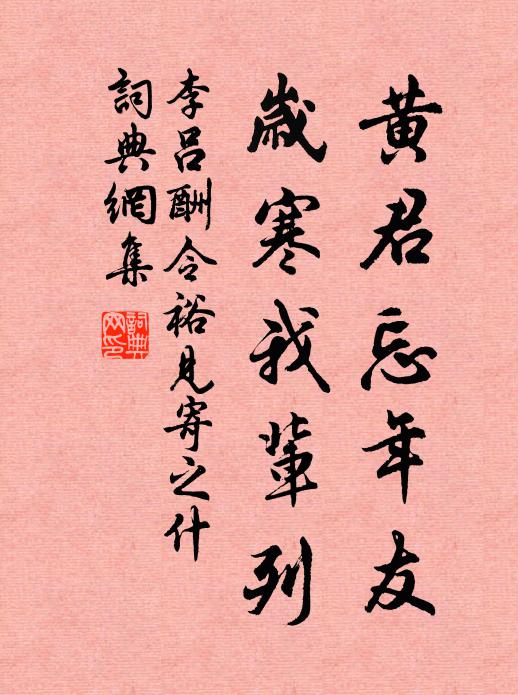 黄君忘年友
歲寒我輩列
李呂酬令裕見寄之什
詞典網集
詞典網印